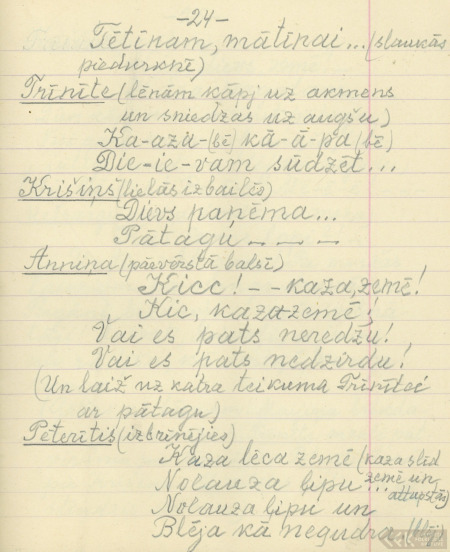 -24-
Tētiņam, mātiņai... (slaukās
piedurknē)
Trīnīte (lēnām kāpj uz akmens
un sniedzas uz augšu)
Ka-azu-(bē) kā-ā-pa (bē)
Die-ie-vam sūdzēt...
Krišiņš (lielās izbailēs)
Dievs paņēma...
Pātagu - - -
Anniņa (pārvērstā balsī)
Kicc! -- kaza, zemē!
Kic, kaza zemē!
Vai es pats neredzu!
Vai es pats nedzirdu!
(Un laiž uz katra teikuma Trīnītei
ar pātagu)
Pēterītis (izbrīnējies)
Kaza lēca zemē (kaza slīd
Nolauza ļipu... zemē un
attupstas)
Nolauza ļipu un
Blēja kā negudra (blēj)